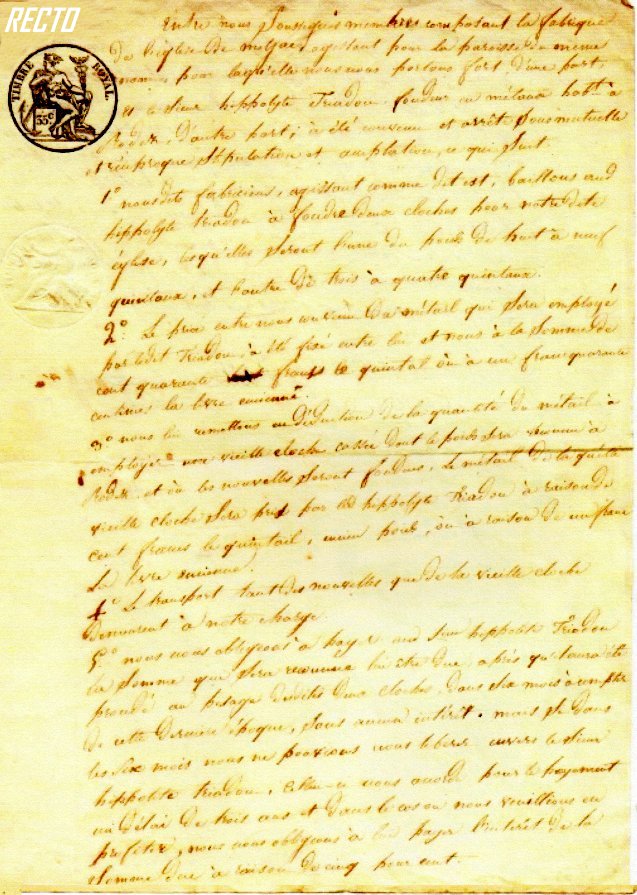 RECTO
TIMBRE ROYAL
35c
Entre nous soussignés membres composant la fabrique
de l'église de agissant pour la paroisse du meme
nom et pour laquelle nous nous portons fort d'une part,
et le sieur hippolyte Triadou, fondeur en métaux habt. à
Rodez, d'autre part; à été convenu et arrêté sous mutuelle
et réciproque stipulation et ce qui suit.
1° nousdits fabriciens, agissant comme dit est, baillons aud
hippolyte triadou à fondre deux cloches pour notredite
église, lesquelles seront l'une du poids de huit à neuf
quintaux, et l'autre de trois à quatre quintaux.
2° Le prix entre nous convenu du métail qui sera employé
par ledit Triadou, à été fixé entre lui et nous à la somme de
cent quarante francs le quintal où à un franc quarante
centimes la livre ancienne.
3° nous lui remettons en déduction de la quantité du métail à
employer une vieille cloche cassée dont le poids sera reconnu à
Rodez et où les nouvelles seront fondues. Le métail de laquelle
vieille cloche sera pris par led hippolyte Triadou à raison de
cent francs le quintail, meme poids, où à raison de un franc
la livre ancienne.
4° Le transport tant des nouvelles que de la vieille cloche
demeurent à notre charge.
5° nous nous obligeons à payer aud sieur hippolyte Triadou
la somme que sera reconnue lui être due, après qu'il aura été
procédé au pesage desdites deux cloches, dans six mois à compter
de cette derniere époque, sans aucun intérêt. mais si dans
les six mois nous ne pouvions nous liberer envers le sieur
hippolite triadou, celui-ci nous accorde pour le payement
un délai de trois ans et dans le cas ou nous voullions en
profiter, nous nous obligeons à lui payer l'intérêt de la
somme due à raison de cinq pour cent.